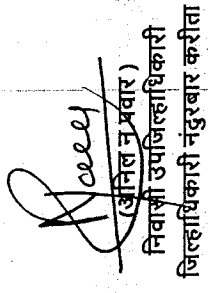 (अनिल न पवार)
निवासी उपजिल्हाधिकारी
जिल्हाधिकारी नंदुरबार करीता